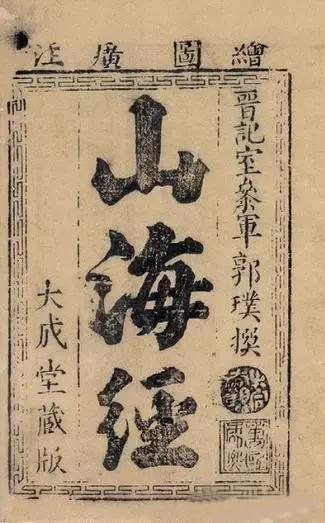 繪圖廣注
晉記室叅軍郭璞撰
山海经
大成堂藏版